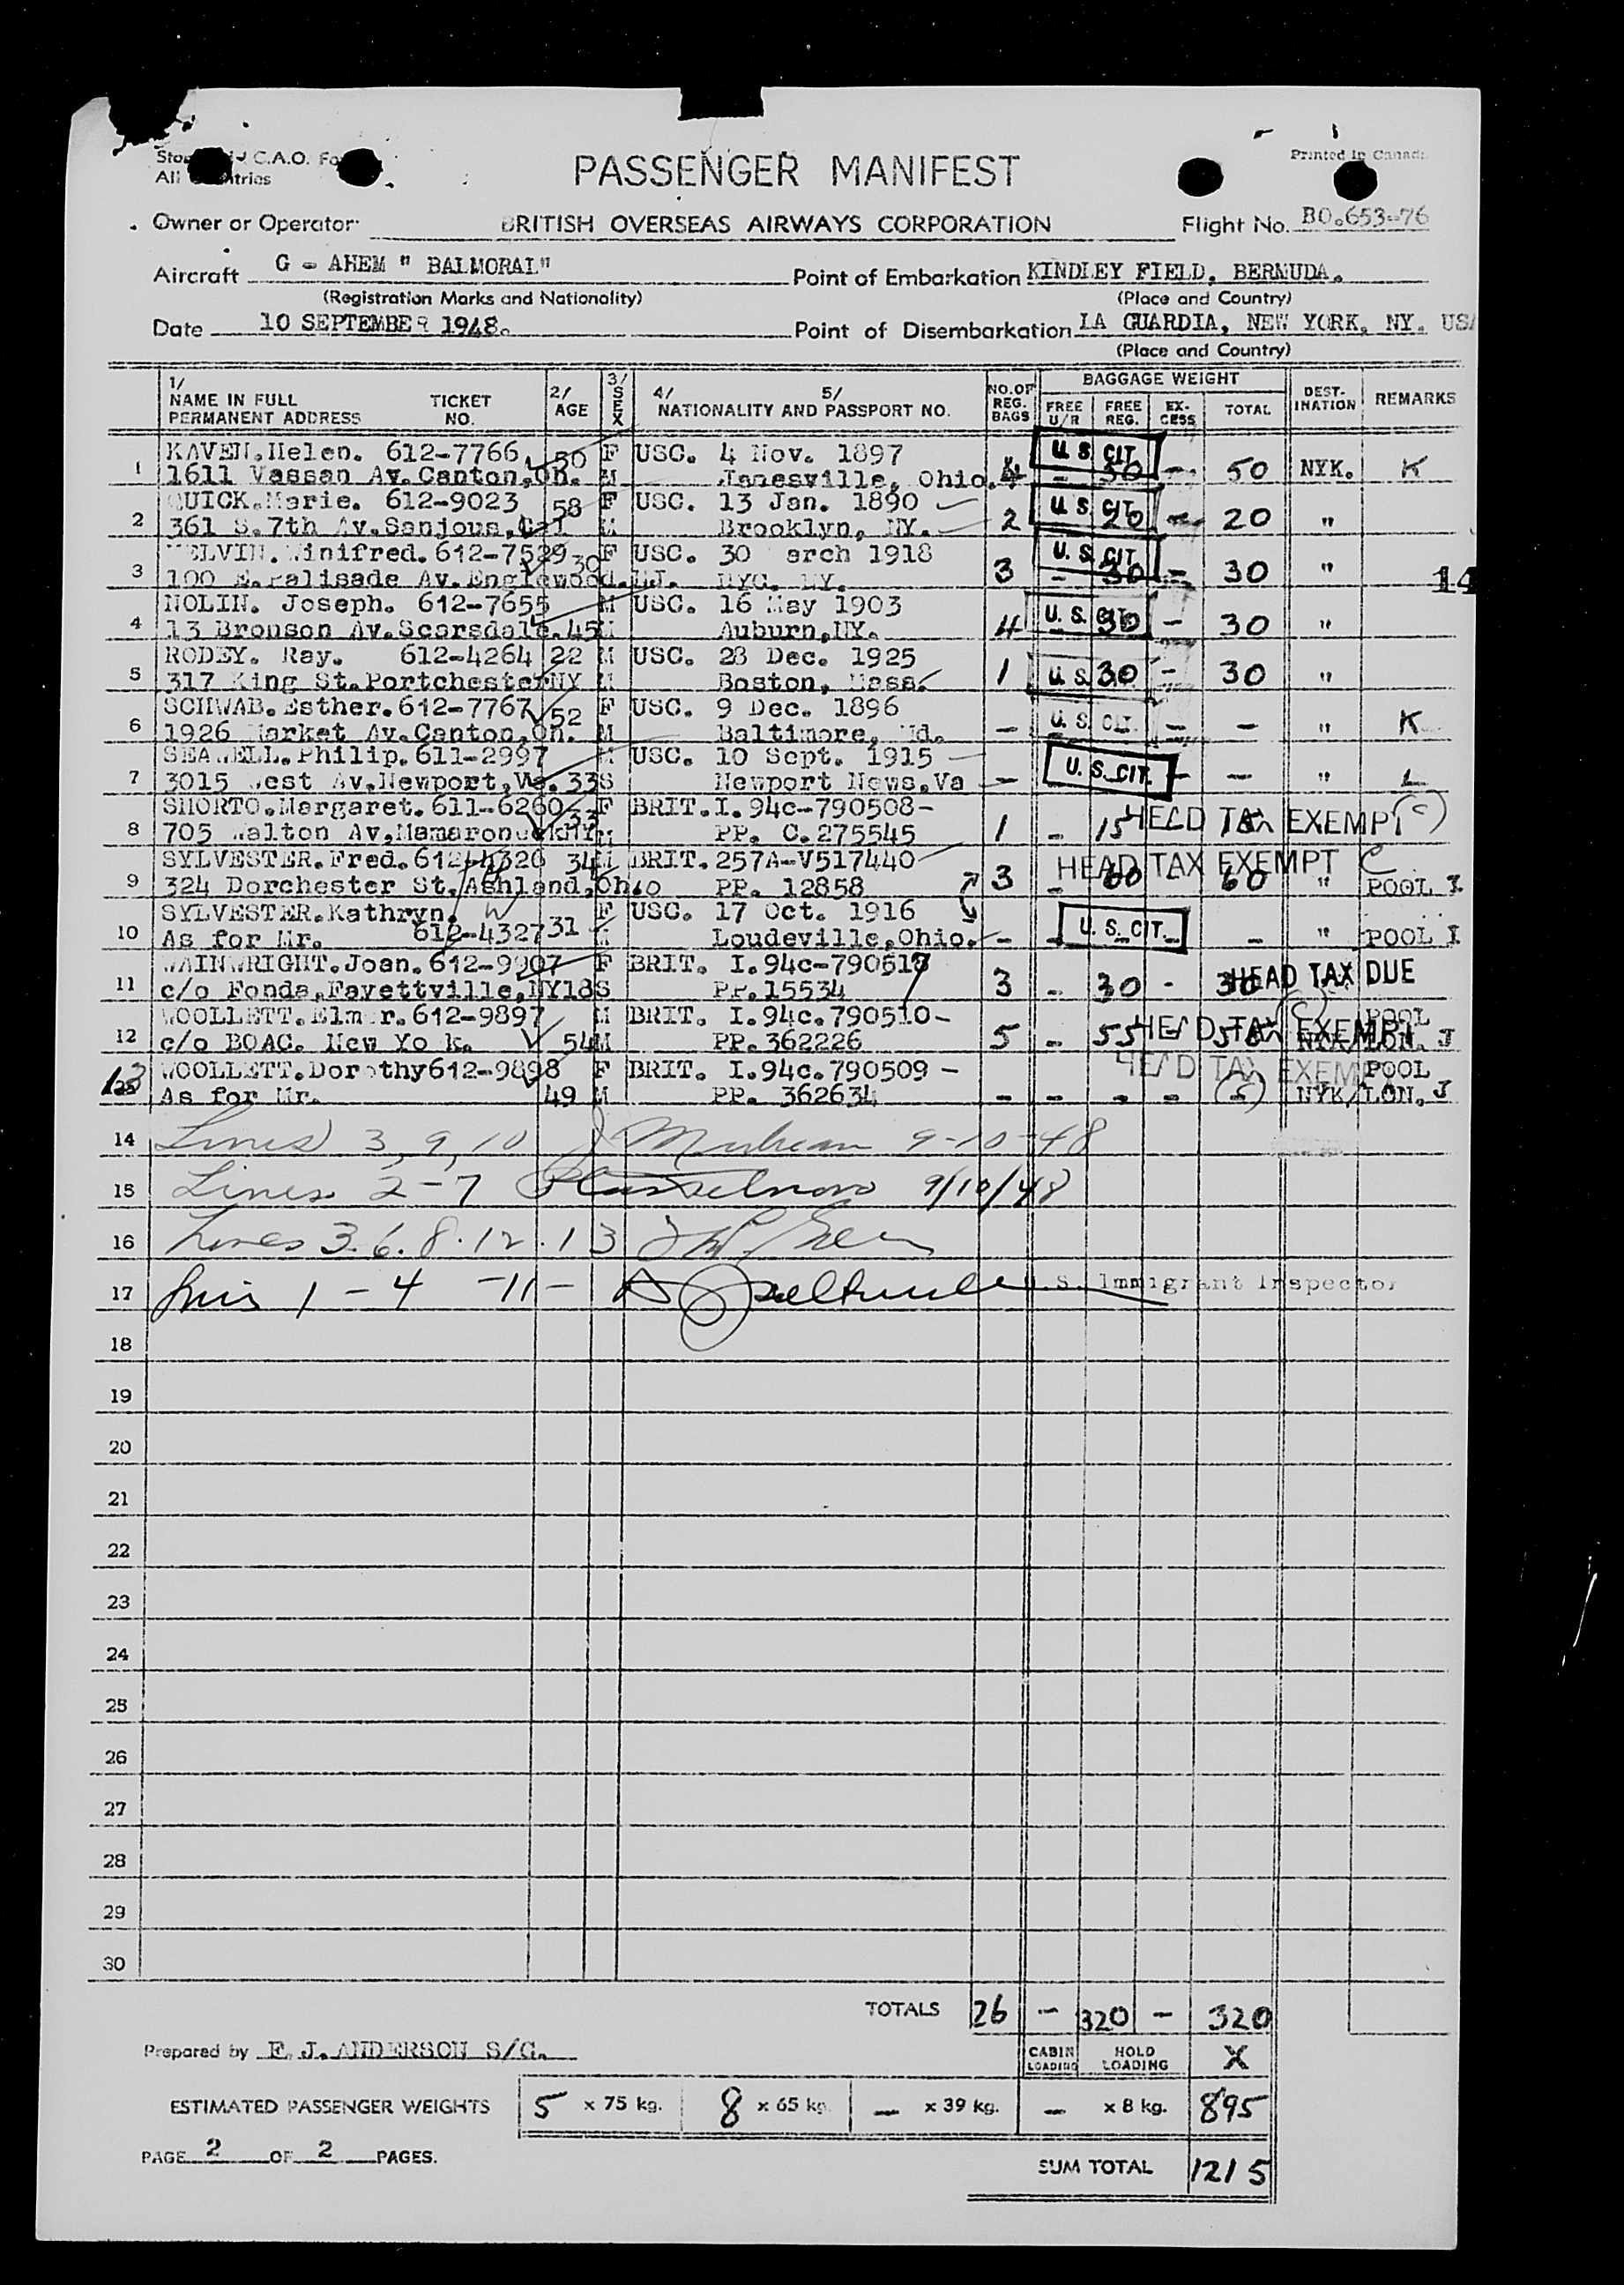 C.A.O.
All
Printed in Canada
PASSENGER MANIFEST
Owner or Operator BRITISH OVERSEAS AIRWAYS CORPORATION Flight No. BO.653-76
Aircraft G - AHEM " BALMORAL" Point of Embarkation KINDLEY FIELD, BERMUDA.
(Registration Marks and Nationality) (Place and Country)
Date 10 SEPTEMBER 1948. Point of Disembarkation LA GUARDIA, NEW YORK, NY. USA
(Place and Country)
1/ NAME IN FULL PERMANENT ADDRESS TICKET NO. 2/ AGE 3/ SEX 4/ 5/ NATIONALITY AND PASSPORT NO. NO. OF REG. BAGS BAGGAGE WEIGHT FREE U/R FREE REG. EX-CESS TOTAL DEST-INATION REMARKS
KAVEN.Helen. 612-7766 50 F USC. 4 Nov. 1897 U.S. CIT.
1 1611 Vassan Av.Canton,Oh. M Janesville, Ohio. 4 - 50 - 50 NYK. K
QUICK.Marie. 612-9023 58 F USC. 13 Jan. 1890 U.S. CIT.
2 361 S.7th Av.Sanjous,Cal M Brooklyn, NY. 2 - 20 - 20 "
MELVIN.Winifred.612-7529 30 F USC. 30 arch 1918 U.S. CIT.
3 100 E.Palisade Av.Englewood.NJ. NYC. NY. 3 - 30 - 30 " 14
NOLIN. Joseph. 612-7655 M USC. 16 May 1903 U.S. CIT.
4 13 Bronson Av.Scarsdale.45M Auburn,NY. 4 30 - 30 "
RODEY. Ray. 612-4264 22 M USC. 28 Dec. 1925
5 317 King St.PortchesterNY M Boston, Mass. 1 U.S. 30 - 30 "
SCHWAB.Esther.612-7767 52 F USC. 9 Dec. 1896
6 1926 Market Av.Canton,Oh. M Baltimore, Md. - U.S. CIT. - - " K
SEAWELL.Philip.611-2997 M USC. 10 Sept. 1915
7 3015 West Av.Newport,Va. 33S Newport News.Va - U.S. CIT. - - " L
SHORTO.Margaret.611-6260 33 F BRIT.I.94c-790508-
8 705 Walton Av,MamaroneckNY M PP. C.275545 1 - 15 - 15 HEAD TAX EXEMPT (C)
SYLVESTER.Fred.612-4326 34 M BRIT.257A-V517440 HEAD TAX EXEMPT C
9 324 Dorchester St.Ashland,Ohio PP. 12858 3 - 60 - 60 " POOL I
SYLVESTER.Kathryn. F USC. 17 Oct. 1916
10 As for Mr. 612-4327 31 M Loudeville,Ohio. - U.S. CIT. - " POOL I
WAINWRIGHT.Joan.612-9907 F BRIT. I.94c-790517
11 c/o Fonda,Fayettville,NY18S PP.15534 3 - 30 - 30 HEAD TAX DUE
WOOLLETT.Elm r.612-9897 M BRIT. I.94c.790510- POOL
12 c/o BOAC. New Yo k. 54M PP.362226 5 - 55 - 55 HEAD TAX EXEMPT NYK/LON. J
WOOLLETT.Dorothy612-9898 F BRIT. I.94c.790509 - HEAD TAX EXEMPT POOL
13 As for Mr. 49 M PP. 362634 - - - - - NYK/LON. J
14 Lines 3, 9, 10 9-10-48
15 Lines 2-7 9/10/48
16 Lines 3.6.8.12.13
17 1 - 4 -11- U.S. Immigrant Inspector
18
19
20
21
22
23
24
25
26
27
28
29
30
TOTALS 26 - 320 - 320
Prepared by E.J.ANDERSON S/C. CABIN LOADING HOLD LOADING X
ESTIMATED PASSENGER WEIGHTS 5 x 75 kg. 8 x 65 kg. - x 39 kg. - x 8 kg. 895
PAGE 2 OF 2 PAGES.
SUM TOTAL 1215